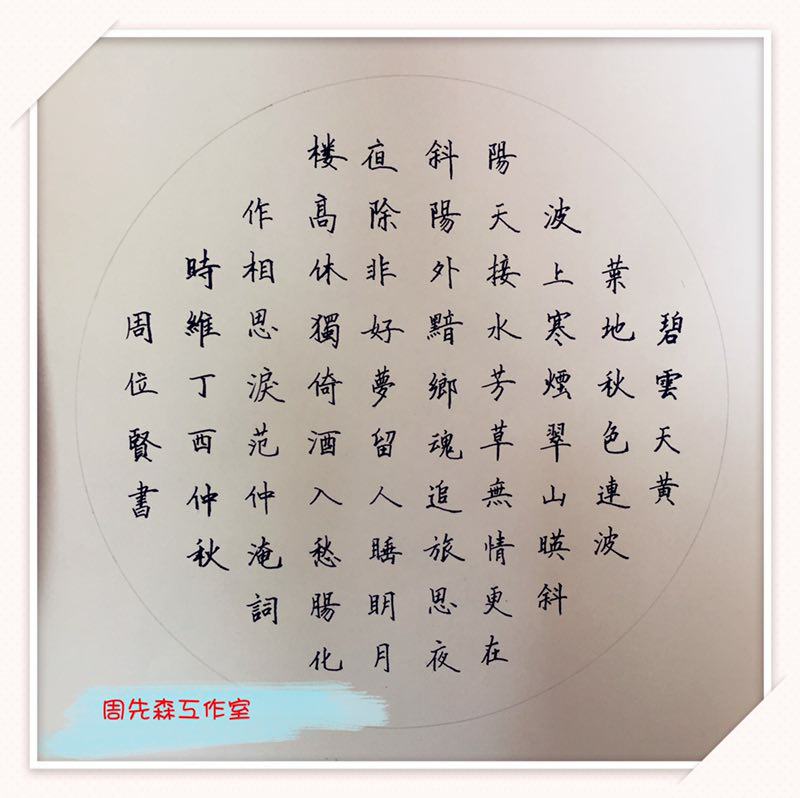 碧雲天黄
葉地秋色連波
波上寒煙翠山暎斜
陽天接水芳草無情更在
斜陽外黯鄉魂追旅思夜
夜除非好夢留人睡明月
楼高休獨倚酒入愁腸化
作相思淚范仲淹詞
時維丁酉仲秋
周位賢書
周先森工作室